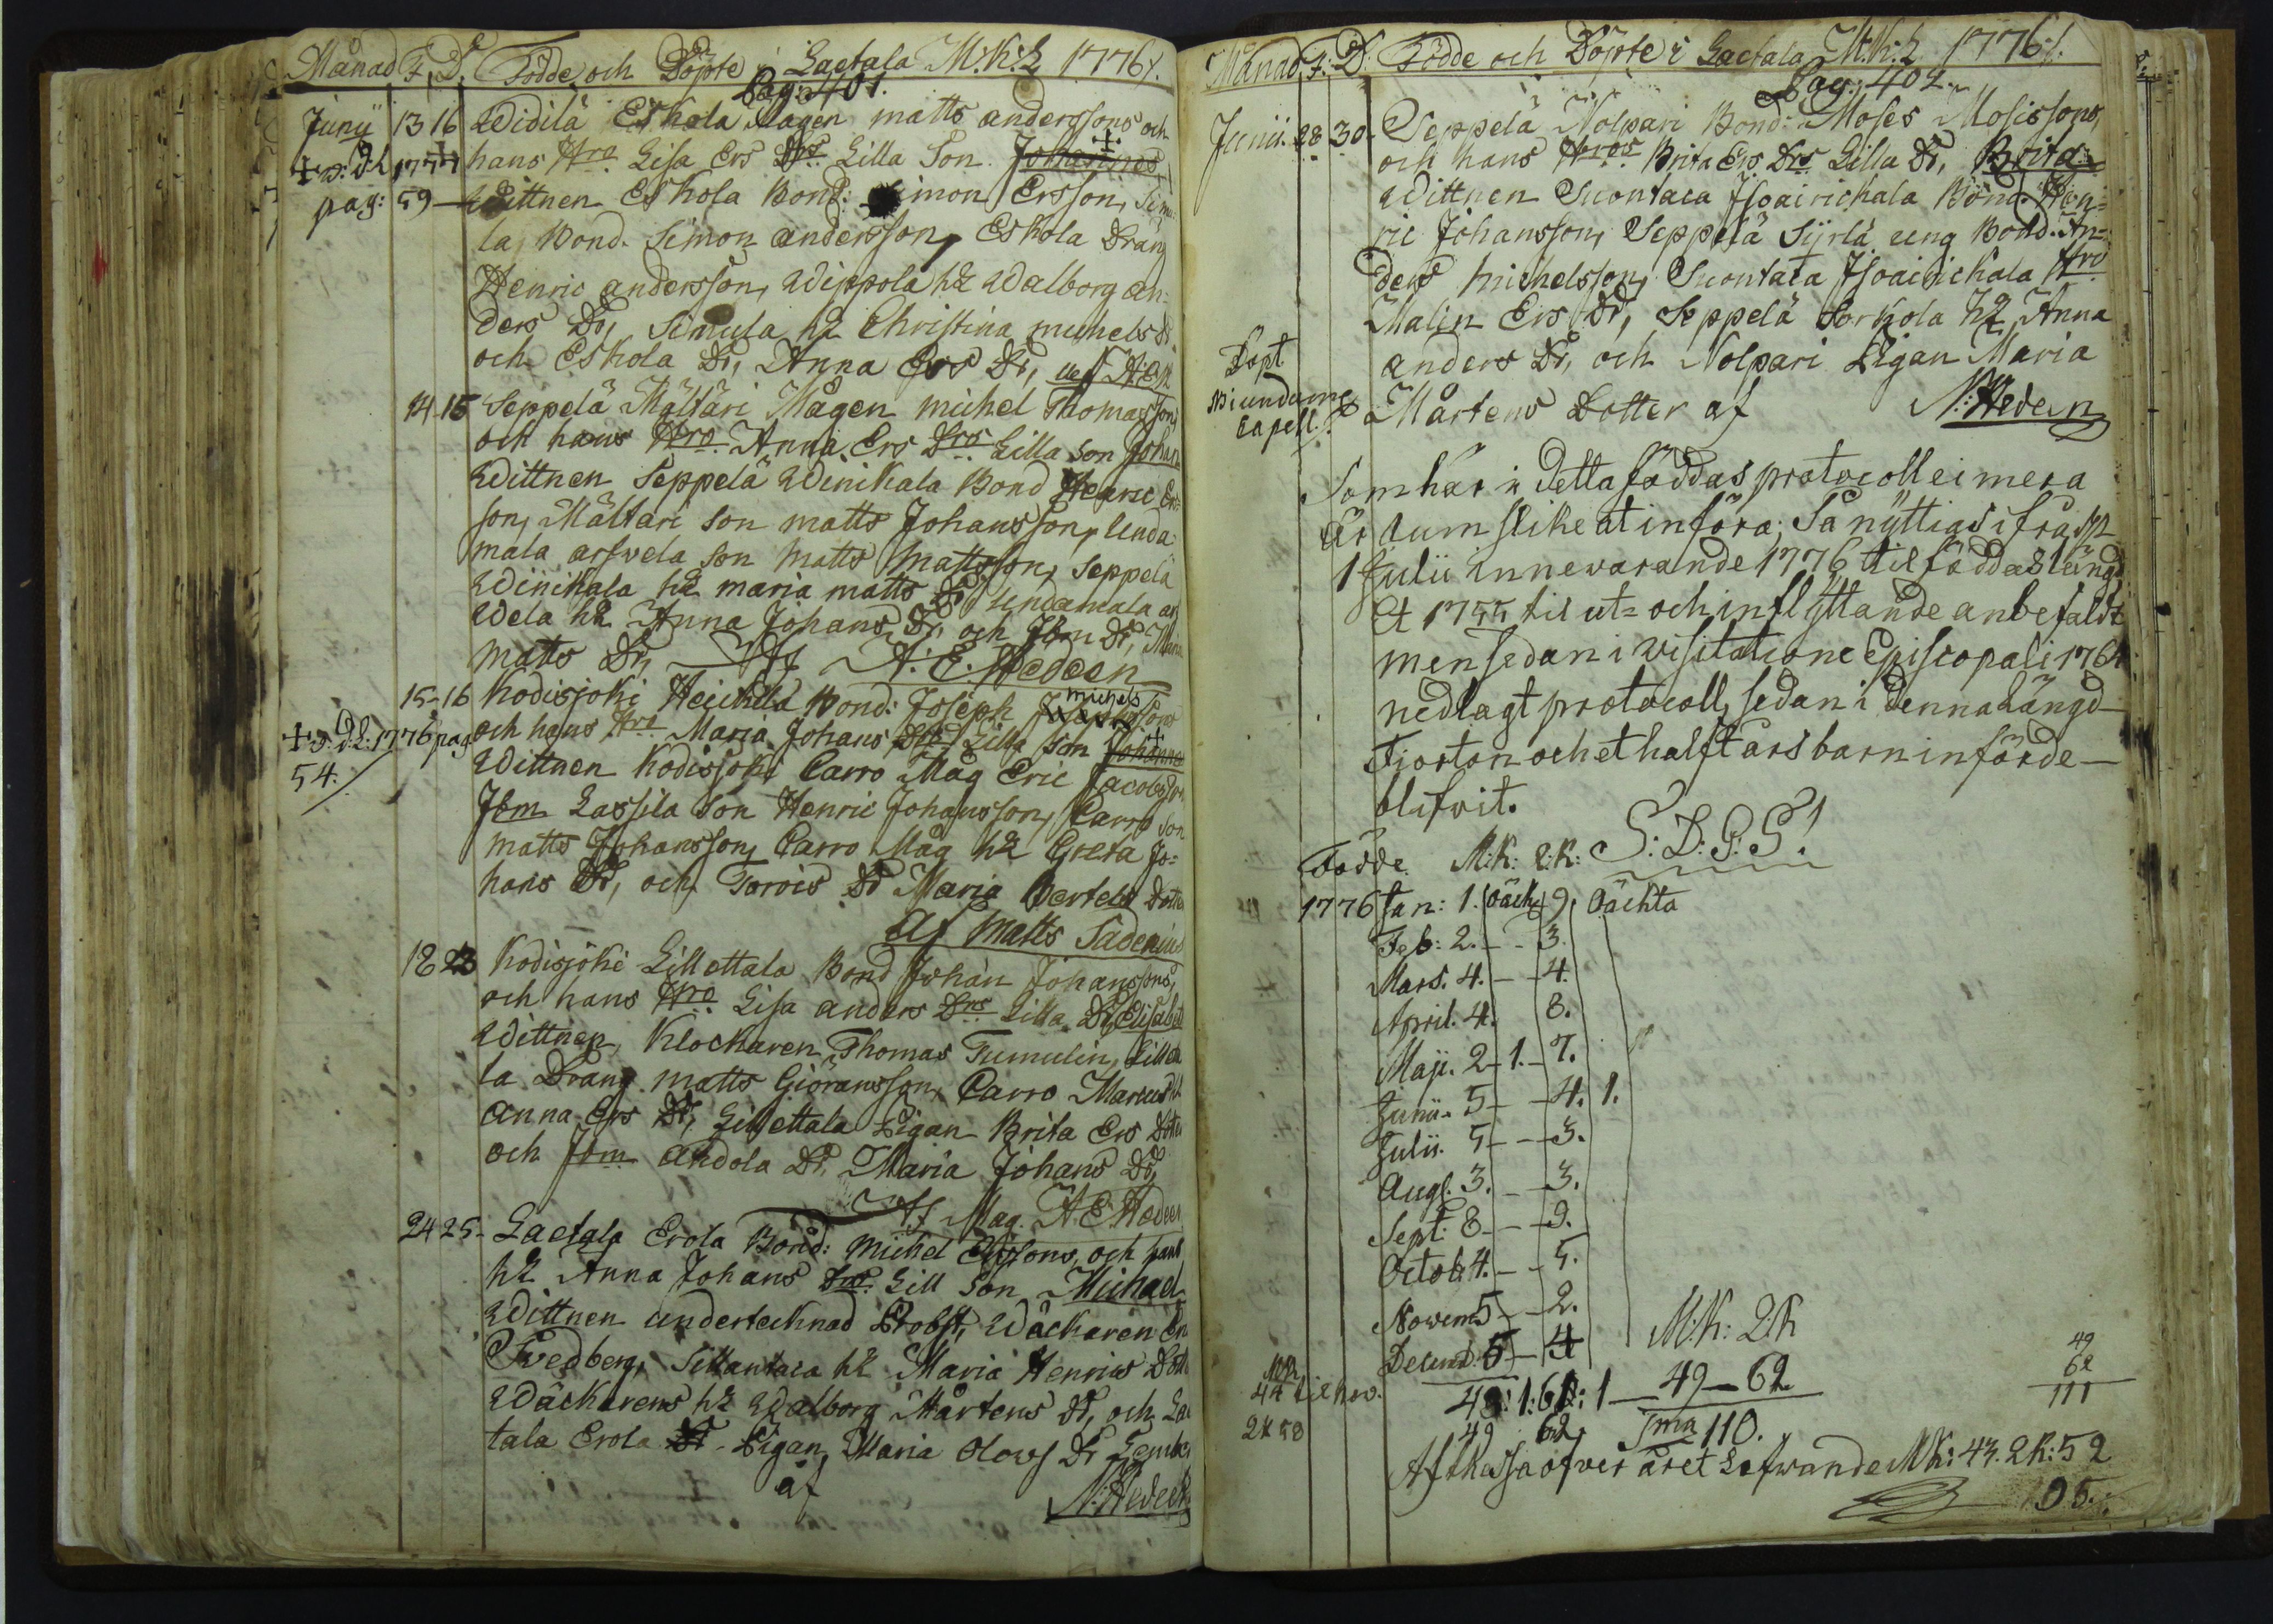 Månad F. D. Födde och Döpte i Laetala M.K:L 1776/.
Pag: 401.
Junii 13 16 Widilä Eskola Mågen matts anderssons och
hans Hro Lisa Ers Drs Lilla Son Johannes
† v: dL 1777 pag: 59
Wittnen Eskola Bond: Simon Ersson, Simu
la Bond. Simon andersson, Eskola Dräng
Henric andersson, Wippola h2 Walborg an-
ders Dr, Simula h2 Christina michels Dr
och Eskola Dr, Anna Ers Dr,
14 15 Seppelä Mältäri Mågen michel Thomassons
och hans Hro Anna Ers Drs Lilla son Johan
Wittnen Seppelä Winikala Bond Henric Ers
son, Mältäri son matts Johansson, unda-
mala arfwela son matts mattsson, Seppelä
Winikala h2 maria matts Dr, undamala ar
wela h2 Anna Johans Dr, och Ibm Dr,
matts Dr, Af A. E. Hedeen
15-16 Kodisjoki Heickilä Bond: Joseph michels
och hans Hro Maria Johans Drs Lilla son Johannes
† v. d.L: 1776 pag 54.
Wittnen Kodisjoki Carro Måg Eric Jacobsson
Ibm Lassila Son Henric Johansson, Carro son
matts Johansson, Carro Måg h2 Greta Jo-
hans Dr, och Torvis Dr Maria Bertels Dotter
Af Matts Sadenius
18 23 Kodisjoki Lillettala Bond Johan Johanssons,
och hans Hro Lisa anders Drs Lilla Dr Elisabet
Wittnen, Klockaren Thomas Tumulin, Lilletta
la Dräng matts Giöransson, Carro Marcus h2
Anna Ers Dr, Lillettala Pigan Brita Ers Dotter
och Ibm andola Dr, Maria Johans Dr,
Af Mag. A E Hedeen
24 25- Laetala Erola Bond: michel Ersons, och hans
h2 Anna Johans Drs Lill Son Michael
Wittnen undertecknad Probst, Wäckaren Er
Svedberg, Sillantaca h2 Maria Henrics Dott
Wäckarens h2 Walborg Mårtens Dr, och La
tala Erola Pigan, Maria Olows Dr
af N: Hedeen
Månad F: D: Födde och Döpte i Laetala M:K:L 1776/.
Pag: 402.
Junii. 28 30. Seppelä Nolpari Bond: Moses Mosissons,
och hans Hros Brita Ers Drs Lilla Dr, Brita
Wittnen Suontaca Isoairichala Bond. Hen-
ric Johansson, Seppelä Sijrlä ung Bond. An-
ders michelsson, Suontaca Isoairichala Hro
Malin Ers Dr, Seppelä Sorkola h2 Anna
anders Dr, och Nolpari Pigan Maria
Mårtens Dotter af N: Hedeen
Döpt
capell.
Som här i detta föddas protocoll ei mera
är rum slike at införa; Så nyttias ifrån
1 Julii innevarande 1776 til föddas längd
Et 1755 til ut- och inflyttande anbefaldt
men sedan i visitatione Episcopali 1764
nedlagt protocoll, sedan i denna längd-
Fiorton och et halft års barn införde-
blifvit.
Födde. M:K: Q:K: S:D:G:S!
1776 Jan: 1. oächt 9. oächta
Feb: 2. - - 3.
Mars. 4. - - 4.
April. 4. 8.
Maji. 2 - 1. - 7.
Junii. 5 - - 4. 1.
Julii. 5 - - - 3.
Augl. 3. - - 3.
Sept. 8 - - - 9.
Octob. 4. - - 5.
Novem 5 - - 2.
Decemb. 5 - 4 M:K: Q:K
48: 1: 61: 1 - 49 - 62
49 62, Sma 110.
49
62
111
Af thessa öfver året Lefwande MK: 43. QK: 52
95.